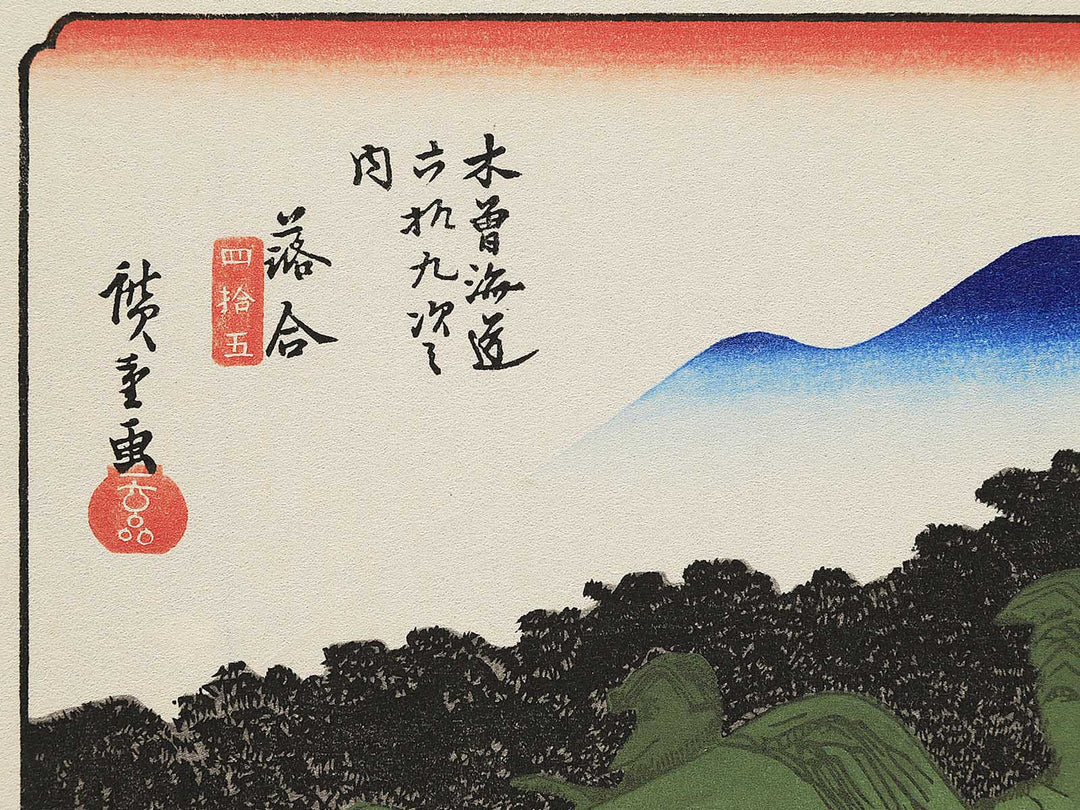 木曽海道
六拾九次之
内
落合
四拾五
廣重画